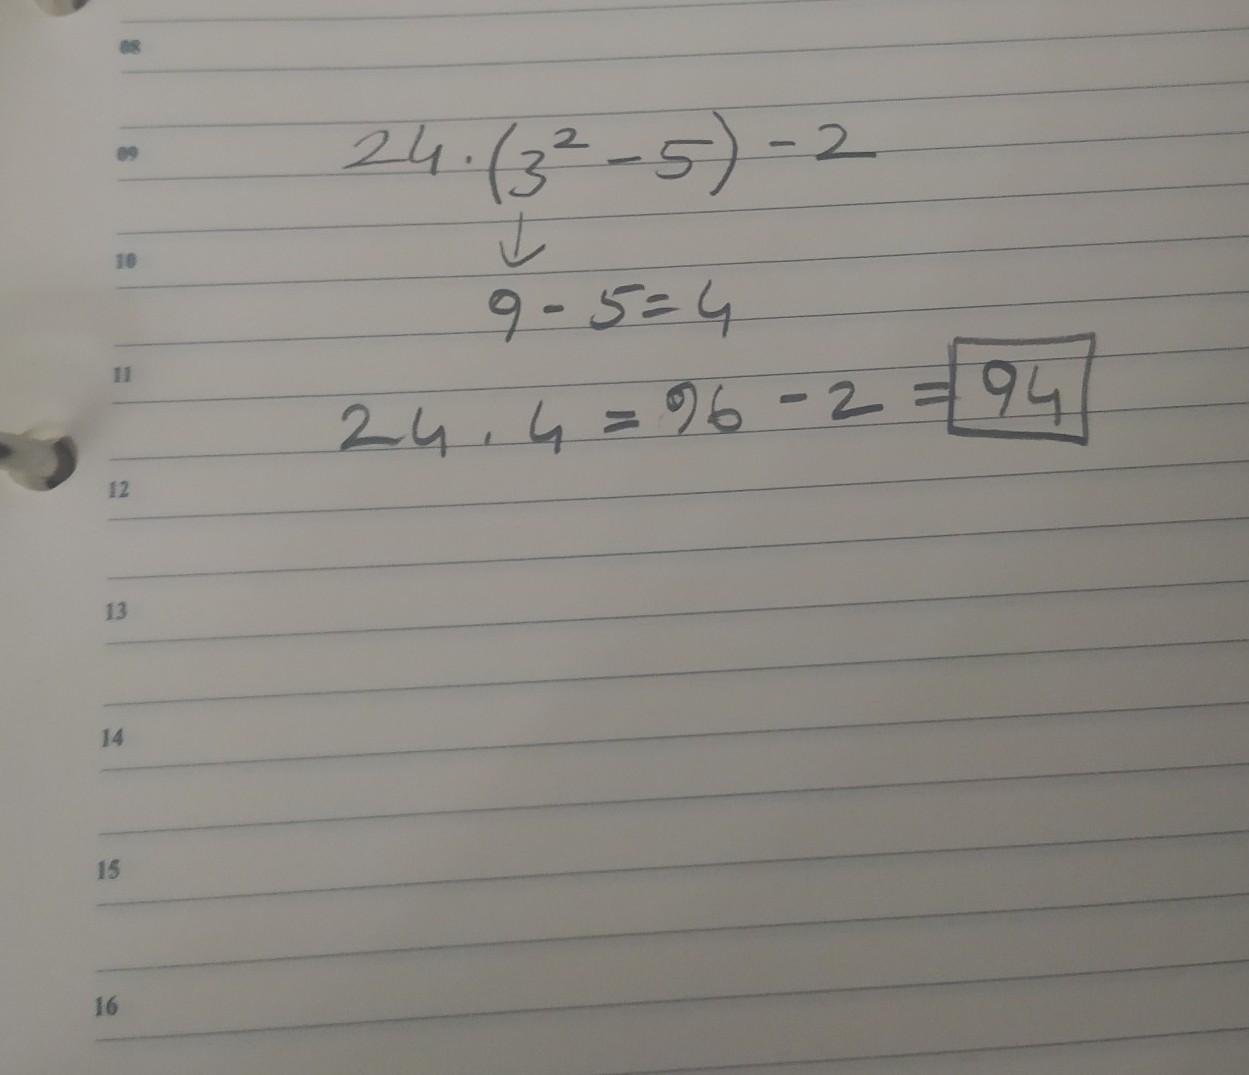 08
09 24·(3² - 5) - 2
↓
10
9 - 5 = 4
11
24 . 4 = 96 - 2 = 94
12
13
14
15
16